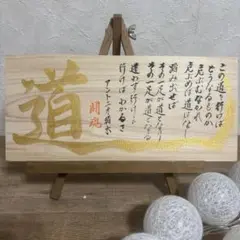 この道を行けば
どうなるものか
危ぶむなかれ
危ぶめば道はなし
踏み出せば
その一足が道となり
その一足が道となる
迷わず行けよ
行けばわかるさ
アントニオ猪木
闘魂
道